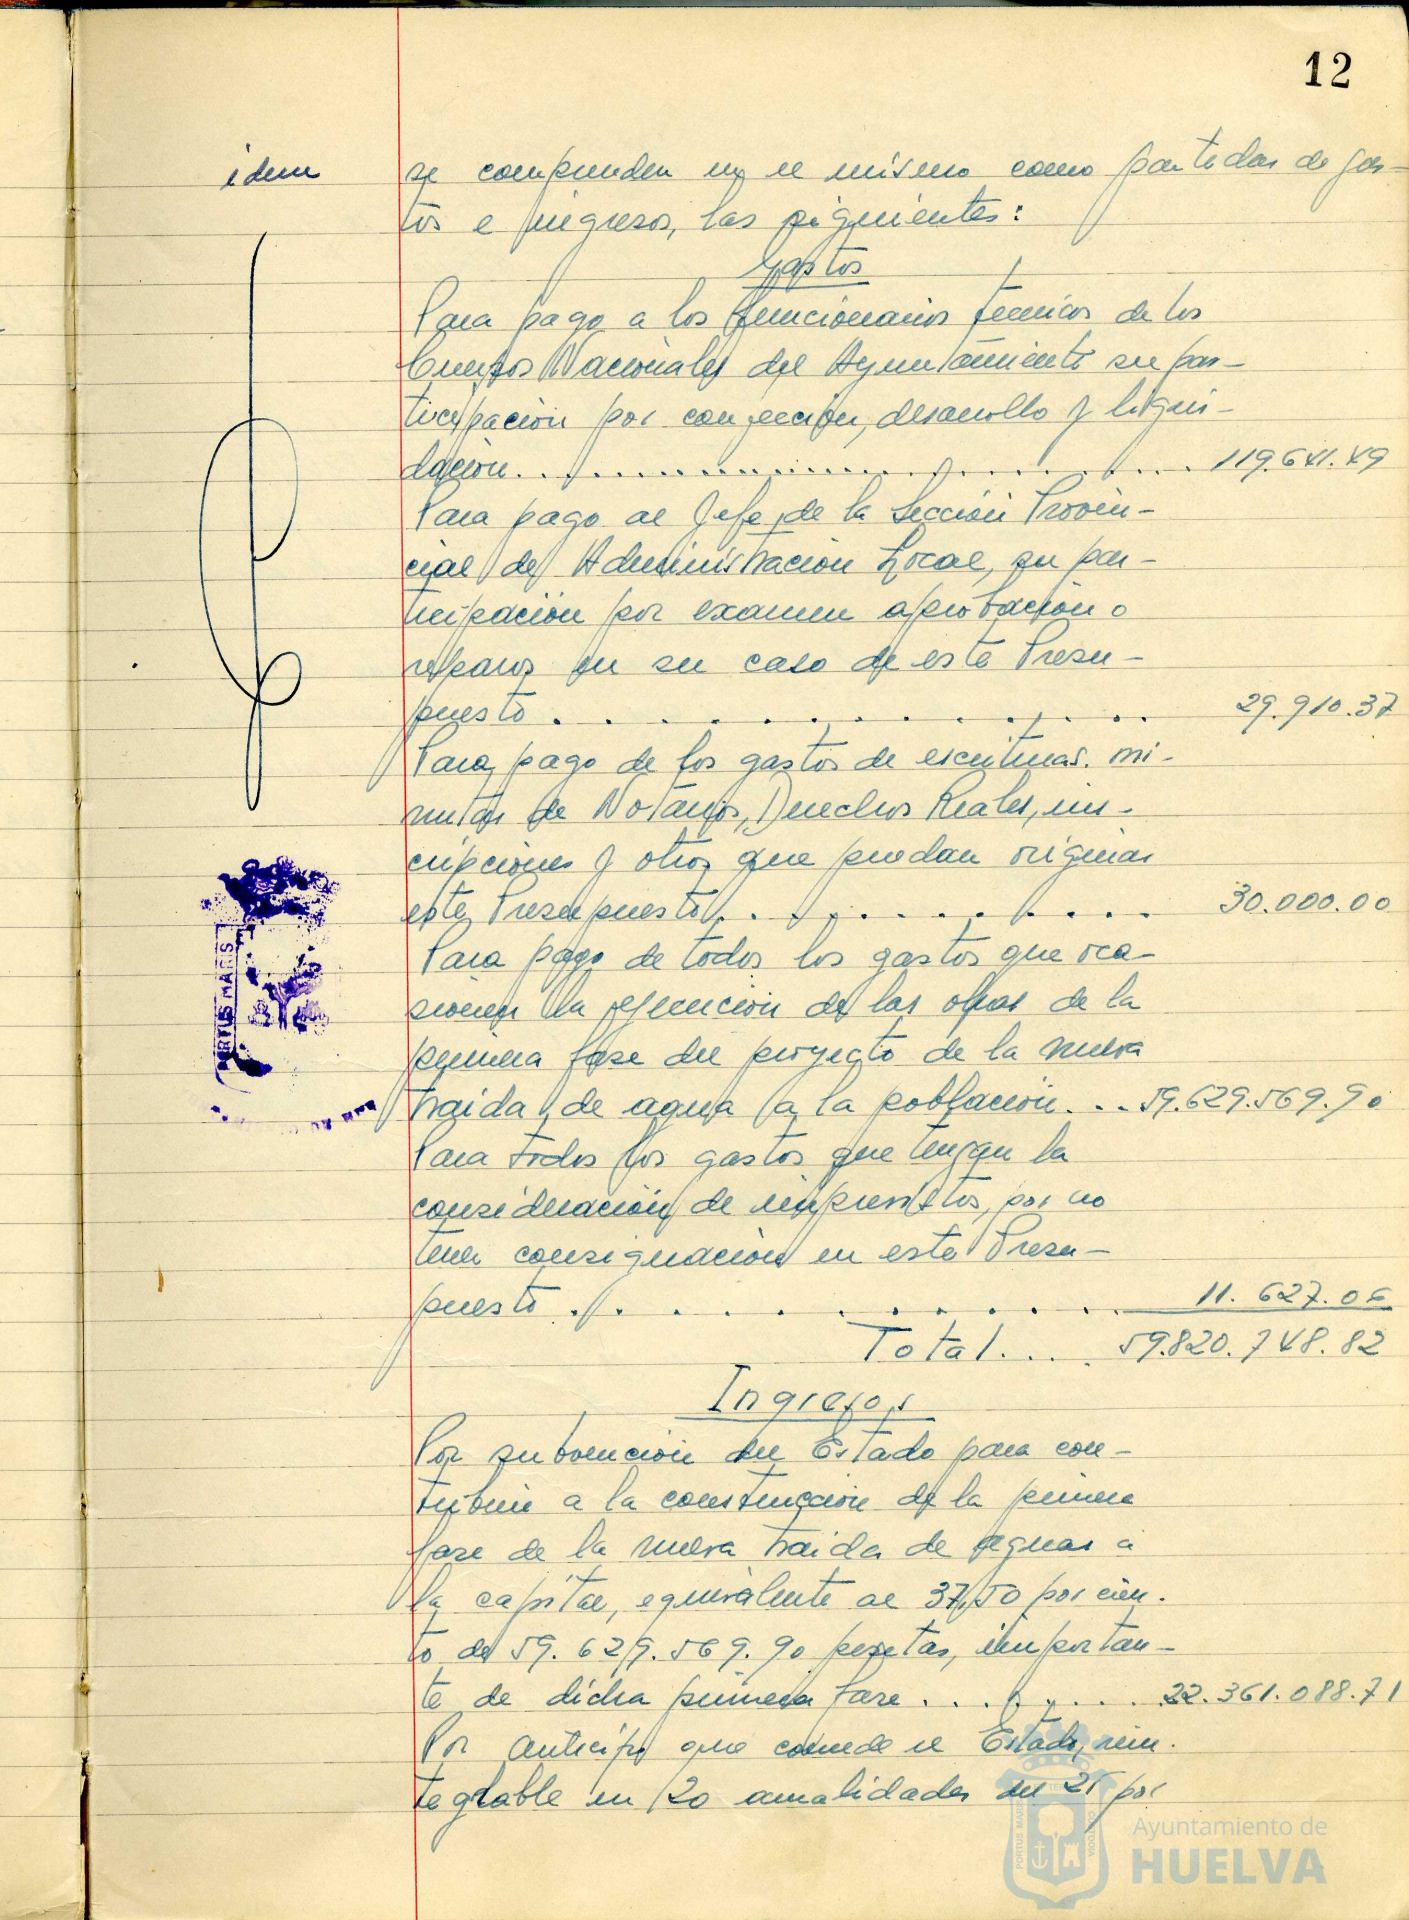 12
idem
se comprenden en el mismo como partidas de gas-
tos e ingresos, las siguientes:
Gastos
Para pago a los funcionarios técnicos de los
Cuerpos Nacionales del Ayuntamiento su par-
ticipación por confección, desarrollo y liqui-
dación.......... 119.641.49
Para pago al Jefe de la Sección Provin-
cial de Administración Local, su par-
ticipación por examen aprobación o
reparos en su caso de este Presu-
puesto.......... 29.910.37
Para pago de los gastos de escrituras. mi-
nutas de Notarios, Derechos Reales, ins-
cripciones y otros que puedan originar
este Presupuesto.......... 30.000.00
Para pago de todos los gastos que oca-
sionen la ejecución de las obras de la
primera fase del proyecto de la nueva
traida de agua a la población... 59.629.569.90
Para todos los gastos que tengan la
consideración de imprevistos, por no
tener consignación en este Presu-
puesto.......... 11.627.06
Total.... 59.820.748.82
Ingresos
Por subvención del Estado para con-
tribuir a la construcción de la primera
fase de la nueva traida de aguas a
la capital, equivalente al 37,50 por cien.
to de 59.629.569.90 pesetas, importan-
te de dicha primera fase........ 22.361.088.71
Por anticipo que concede el Estado, rein.
tegrable en 20 anualidades del 25 por
PORTUS MARIS
Ayuntamiento de
HUELVA